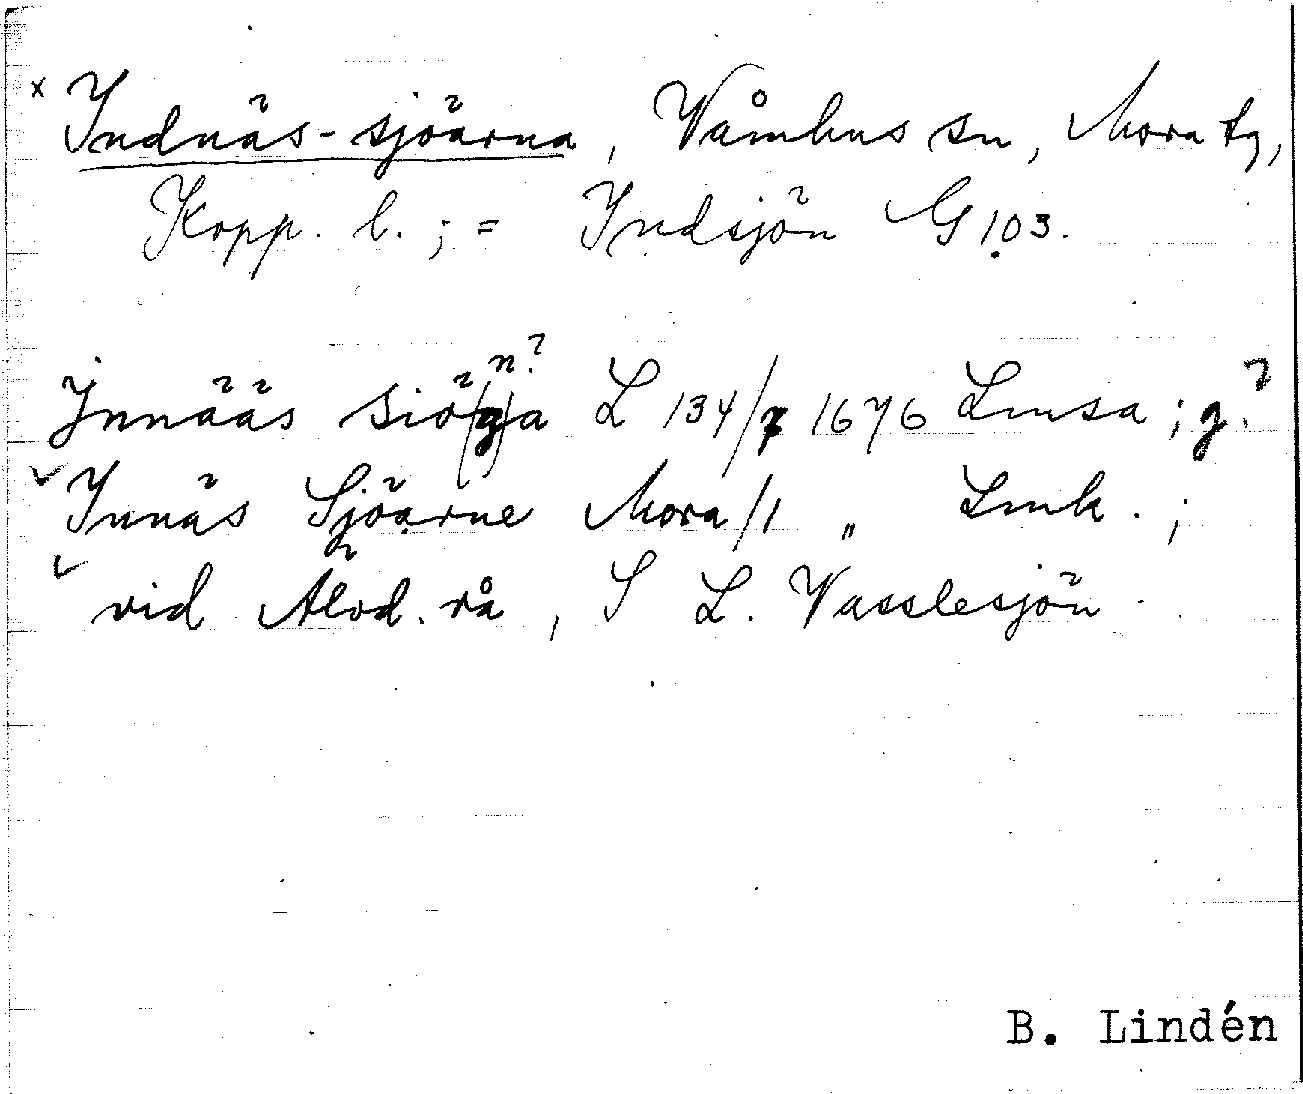 x Indnäs-sjöarna, Våmhus sn, Mora tg,
Kopp. l. ; = Indsjön G 103.
n?
Innääs siö(g)a L 134/7 1676 Lmsa ; g?
Innäs Sjöarne Mora/1 „ Lmh. ;
vid Älvd. rå, S L. Vasslesjön
B. Lindén